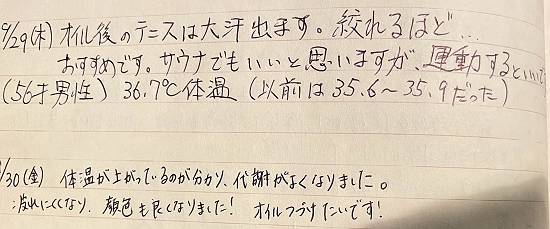 9/29(木) オイル後のテニスは大汗出ます。絞れるほど…
おすすめです。サウナでもいいと思いますが、運動するといいで
(56才男性) 36.7℃体温 (以前は35.6〜35.9だった)
/30(金) 体温が上がっているのが分かり、代謝がよくなりました。
疲れにくくなり、顔色も良くなりました! オイルつづけたいです!